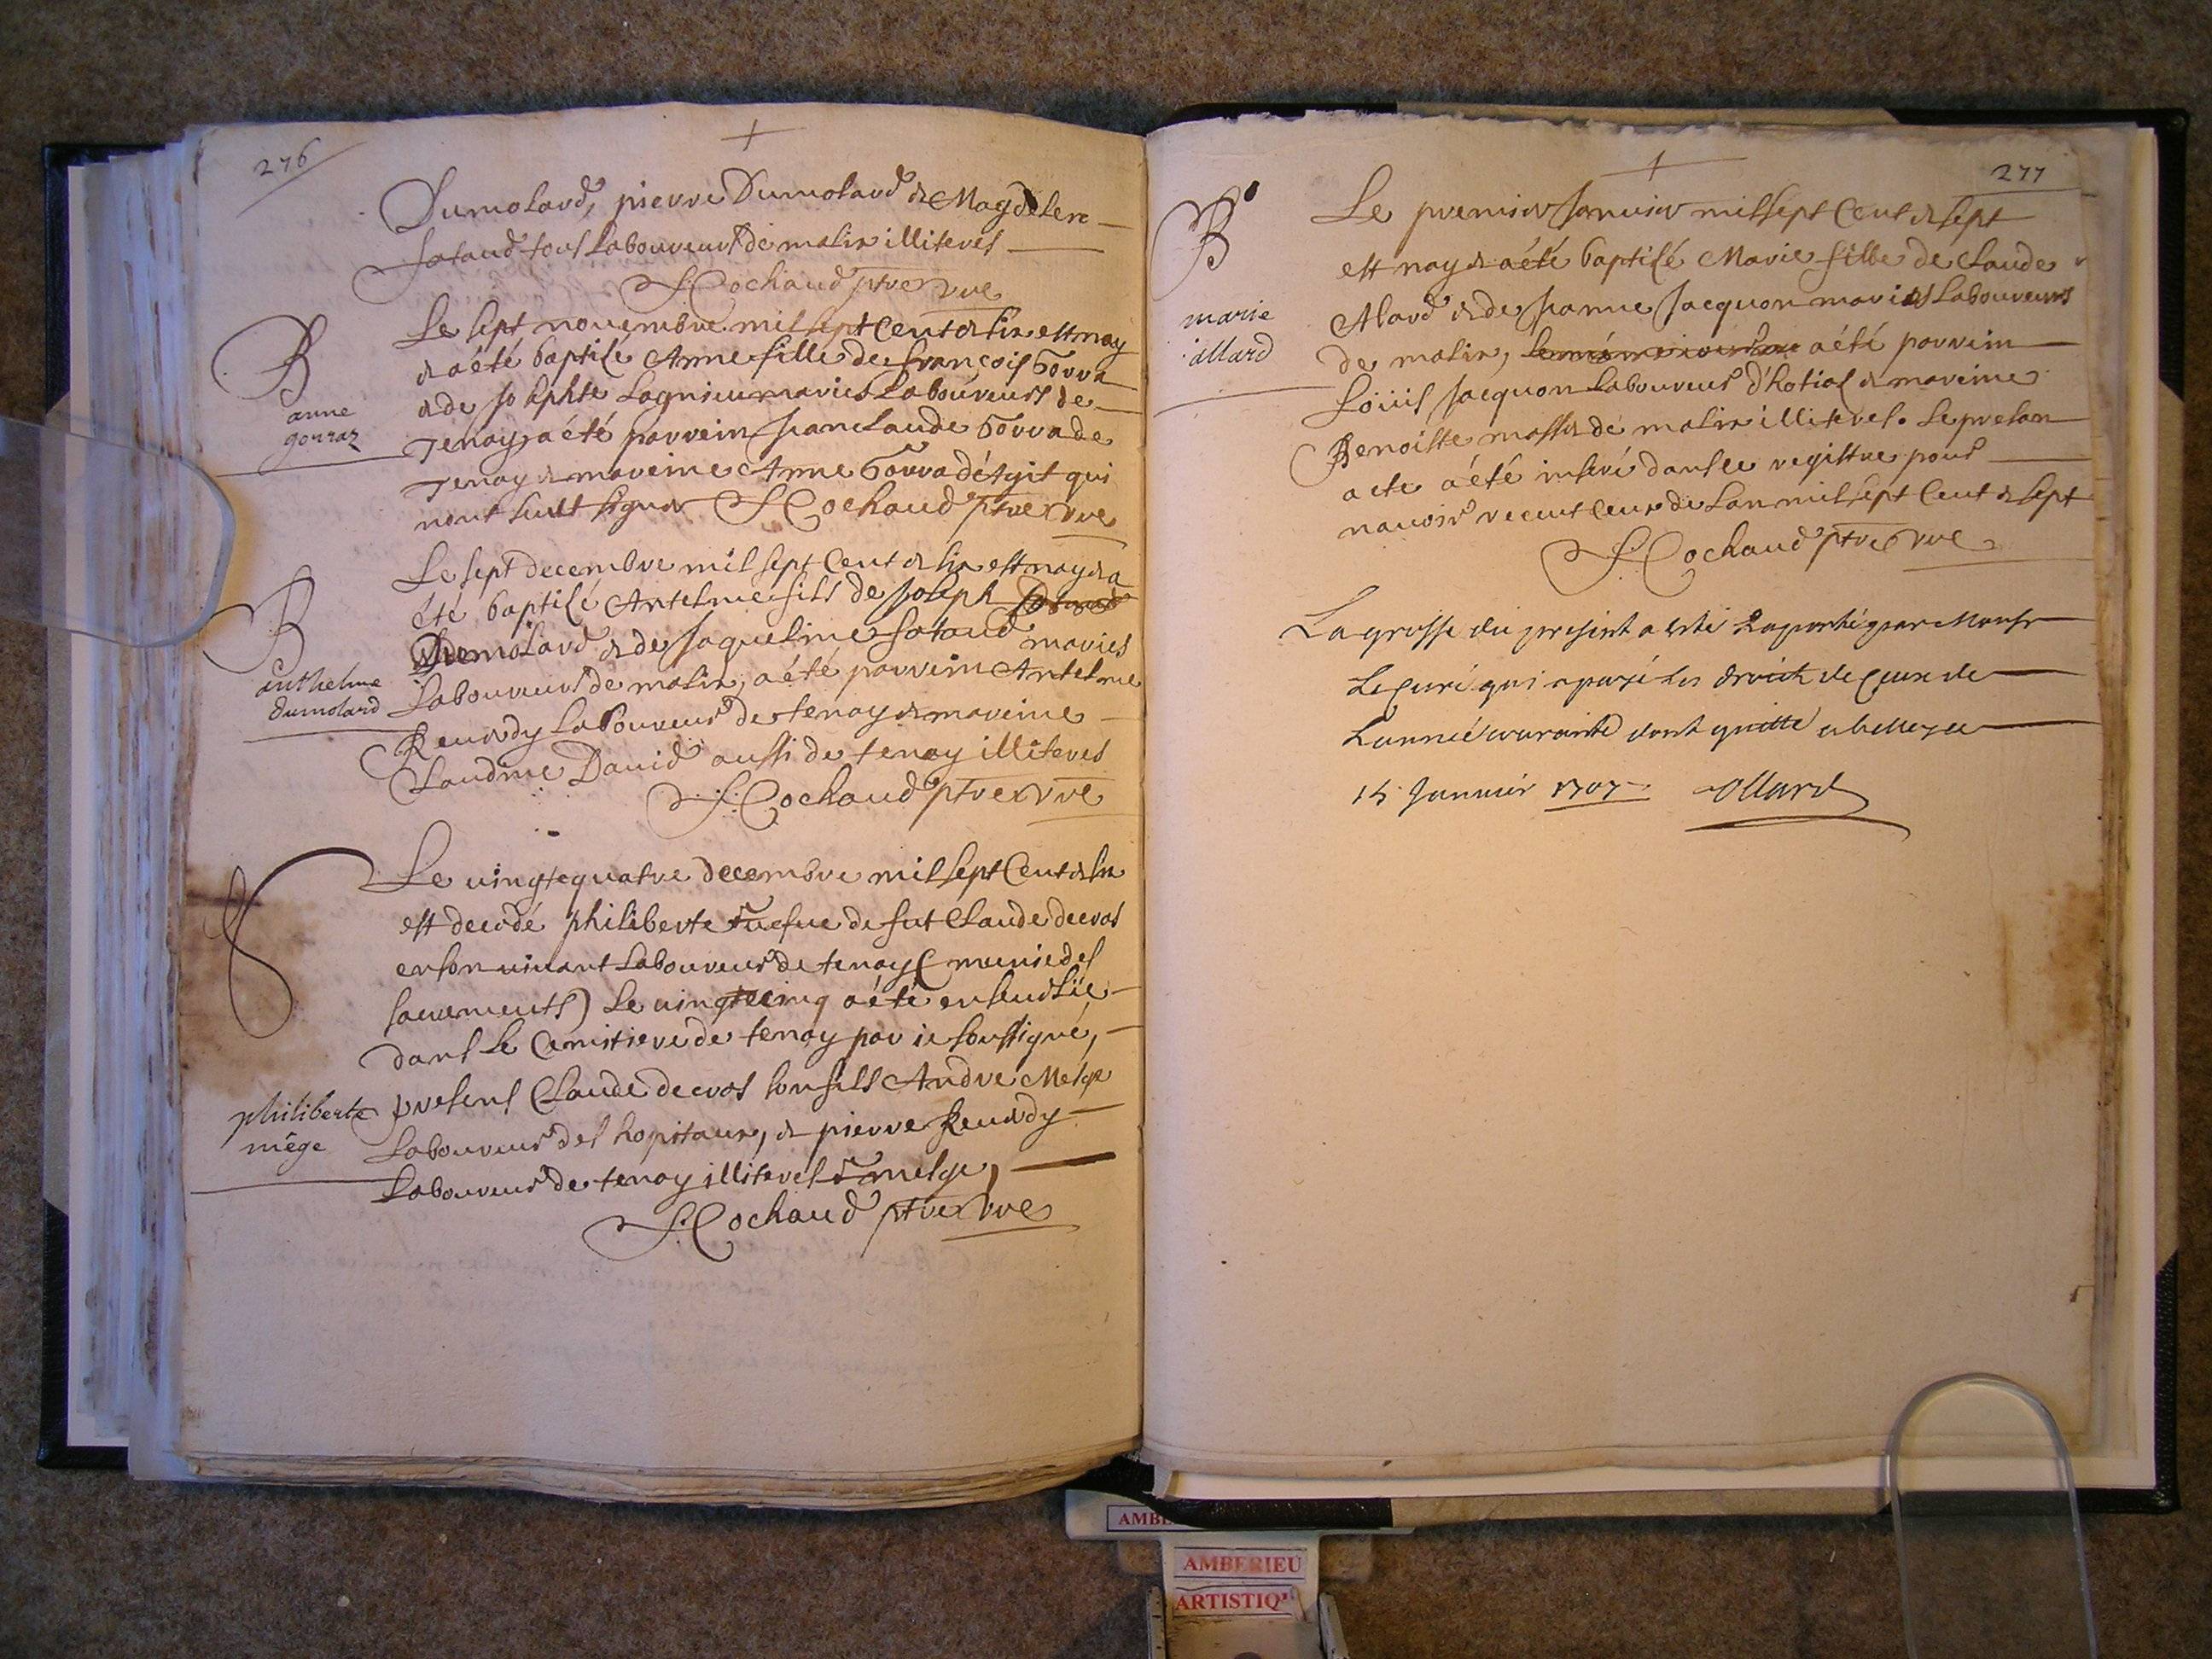 276
Dumolard, pierre Dumolard & Magdelene
fataud tous Laboureurs de malix illiteres
F Cochaud ptre vre
B
anne
gorraz
Le sept novembre mil sept Cent & six est nay
& a été baptisé Anne fille de françois Gorra
& de Josephte Lagnieu maries Laboureurs de
Tenay, a été parrein Jean claude Gorra de
Tenay & mareine Anne Gorra d'
nont sceut signer F Cochaud ptre vre
B
anthelme
dumolard
Le sept decembre mil sept Cent & six est nay & a
été baptisé Antelme fils de Joseph
Dumolard & de Jaqueline fataud maries
Laboureurs de malix, a été parrein Antelme
Reverdy Laboureur de tenay & mareine
Claudine David aussi de tenay illiteres
F Cochaud ptre vre
philiberte
mêge
Le vingtequatre decembre mil sept Cent & six
est decedé philiberte vuefue de fut Claude decros
en son vivant Laboureur de tenay (munie des
sacrements) Le vingtecinq a été ensevelie
dans Le Cemitiere de tenay par ie soussigné,
presens Claude decros son fils Andre Mesge
Laboureur des hopitaux, & pierre Reverdy
Laboureur de tenay illiteres mesge,
F Cochaud ptre vre
277
B
marie
allard
Le premier Janvier mil sept Cent & sept
est nay & a été baptisé Marie fille de Claude
Alard & de Jeanne Jacquon maries Laboureurs
de malix, a été parrein
Loüis Jacquon Laboureur d'hotias & mareine
Benoiste de malix illiteres. Le presan
acte a été inseré dans ce registre pour
navoir receut ceux de Lan mil sept Cent & sept
F Cochaud ptre vre
La grosse du present a esté Raportée par Monsr
Le curé qui a payé les droits de ceux de
L'année courante dont quitté a belley ce
15 Janvier 1707 Ollard
AMBE
AMBERIEU
ARTISTIQU